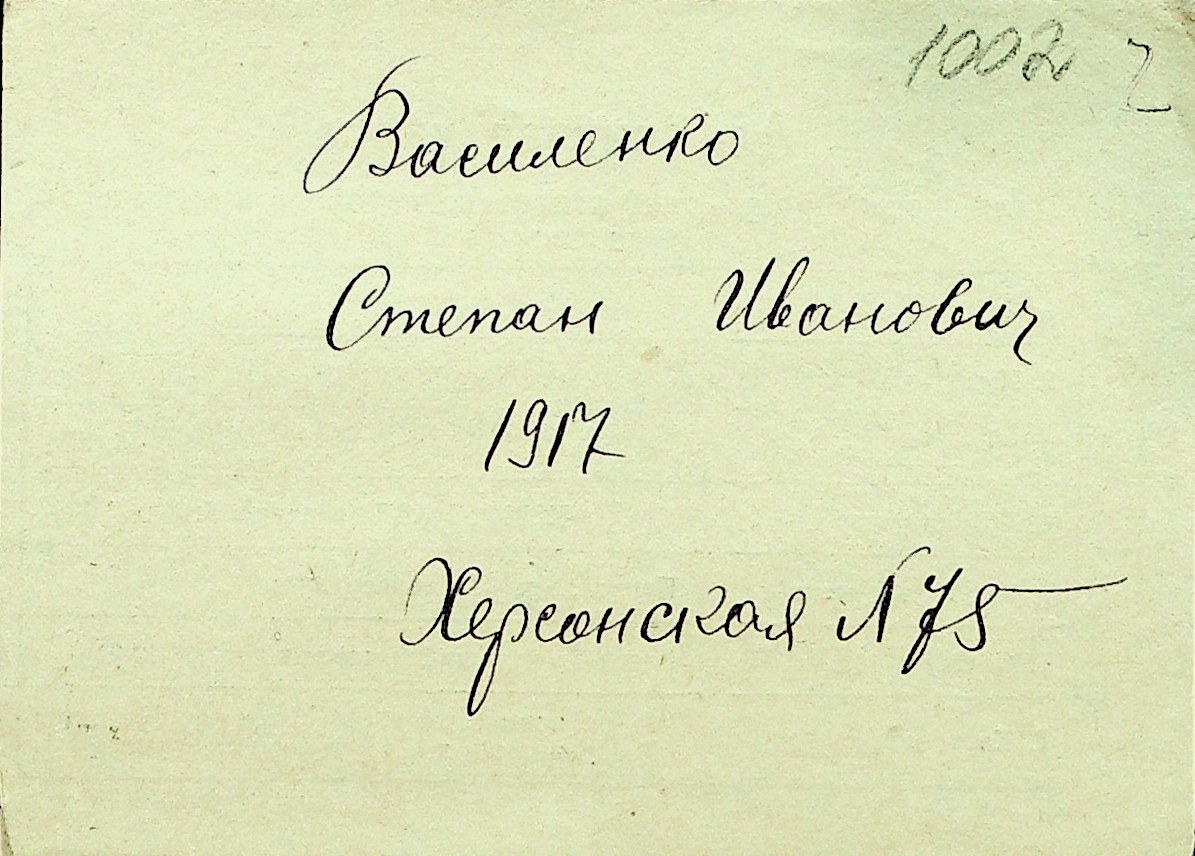 1002 2
Василенко
Степан Иванович
1917
Херсонская N 75